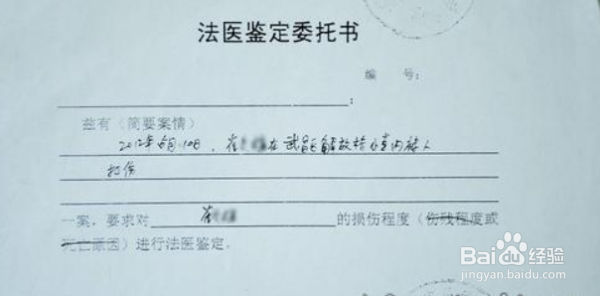 法医鉴定委托书
编 号：
：
兹有（简要案情）
2012年 月10日，崔 在武昌区 内被人
打伤
一案，要求对 崔 的损伤程度（伤残程度或
死亡原因）进行法医鉴定。
Baidu经验
jingyan.baidu.com